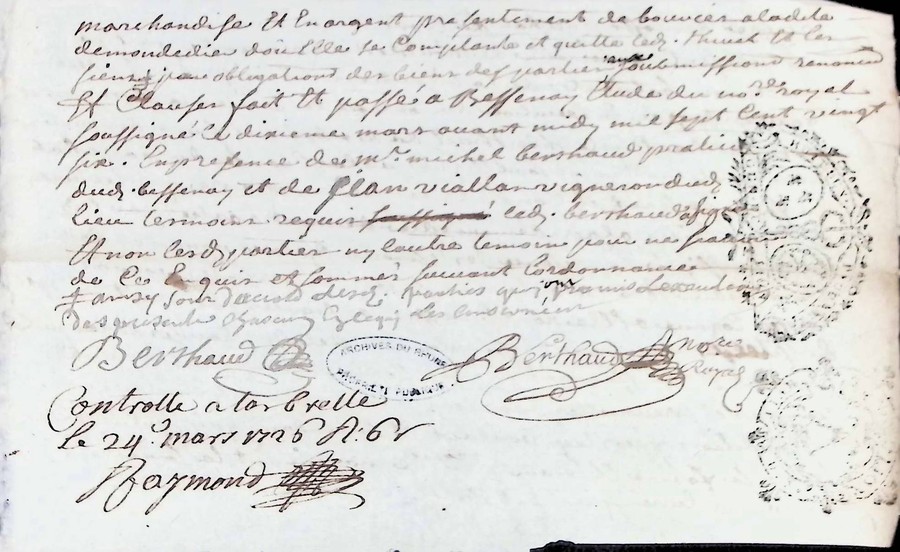 marchandise Et En argent presentement de bources a ladite
demondedie dont Elle se Contante et quitte led. Et les
siens par obligations des biens desd parties aux soubmissions renonciā
Et Clauses fait Et passé a Bessenay Etude du no.re royal
soussigné le dixieme mars avant midy mil sept Cent vingt
six. En presence de m.re michel berthaud praticien
dud. bessenay et de Jean viallan vigneron dud
lieu temoins requis soussigné led. berthaud a signé
Et non lesd parties ny lautre temoin pour ne scavoir
de Ce Enquis et sommés suivant Lordonnance
parties qui ont promis
des presentes chacun
Berthaud
Berthaud no.re Royal
ARCHIVES DU RHONE
PROPRIÉTÉ PUBLIQUE
Controlle a larbrelle
le 24e mars 1726 R: 6s
Raymond